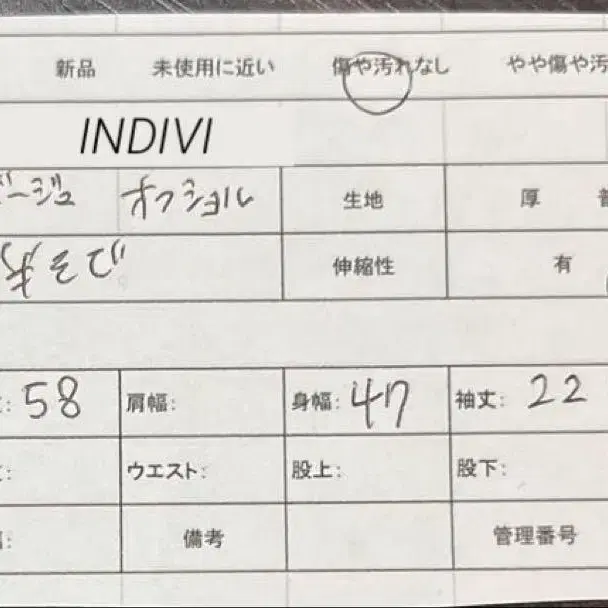 新品 未使用に近い 傷や汚れなし やや傷や汚
INDIVI
ベージュ オフショル 生地 厚
そで 伸縮性 有
: 58 肩幅: 身幅: 47 袖丈: 22
: ウエスト: 股上: 股下:
: 備考 管理番号